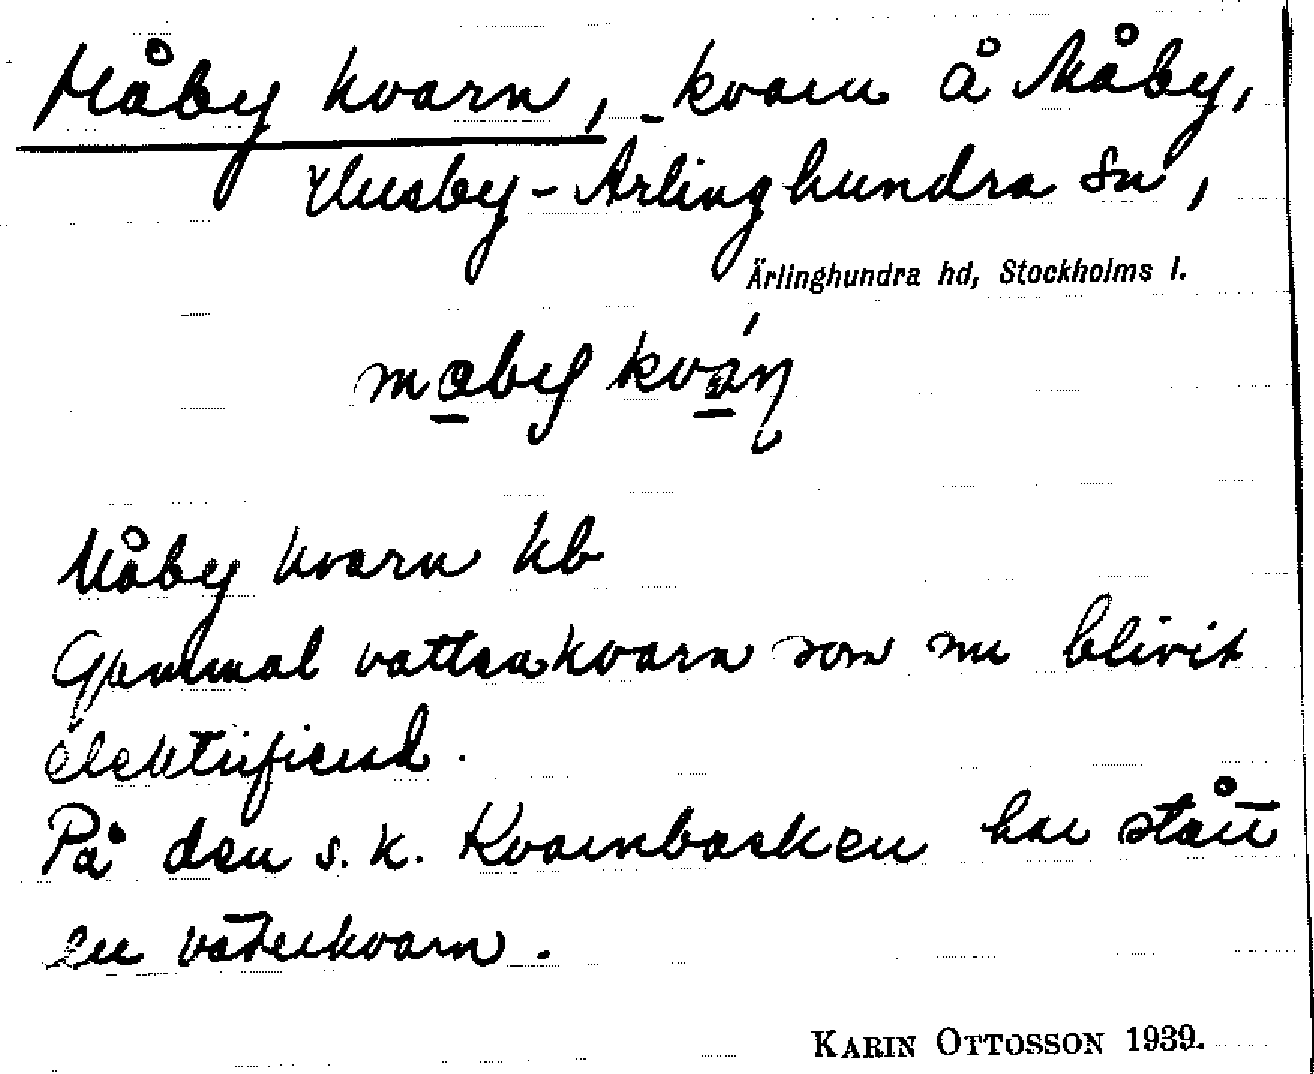 Måby kvarn, kvarn å Måby,
Husby-Ärlinghundra sn,
Ärlinghundra hd, Stockholms l.
Måby kvarn kb
Gammal vattenkvarn som nu blivit
elektrificerad.
På den s.k. Kvarnbacken har stått
en väderkvarn.
KARIN OTTOSSON 1939.